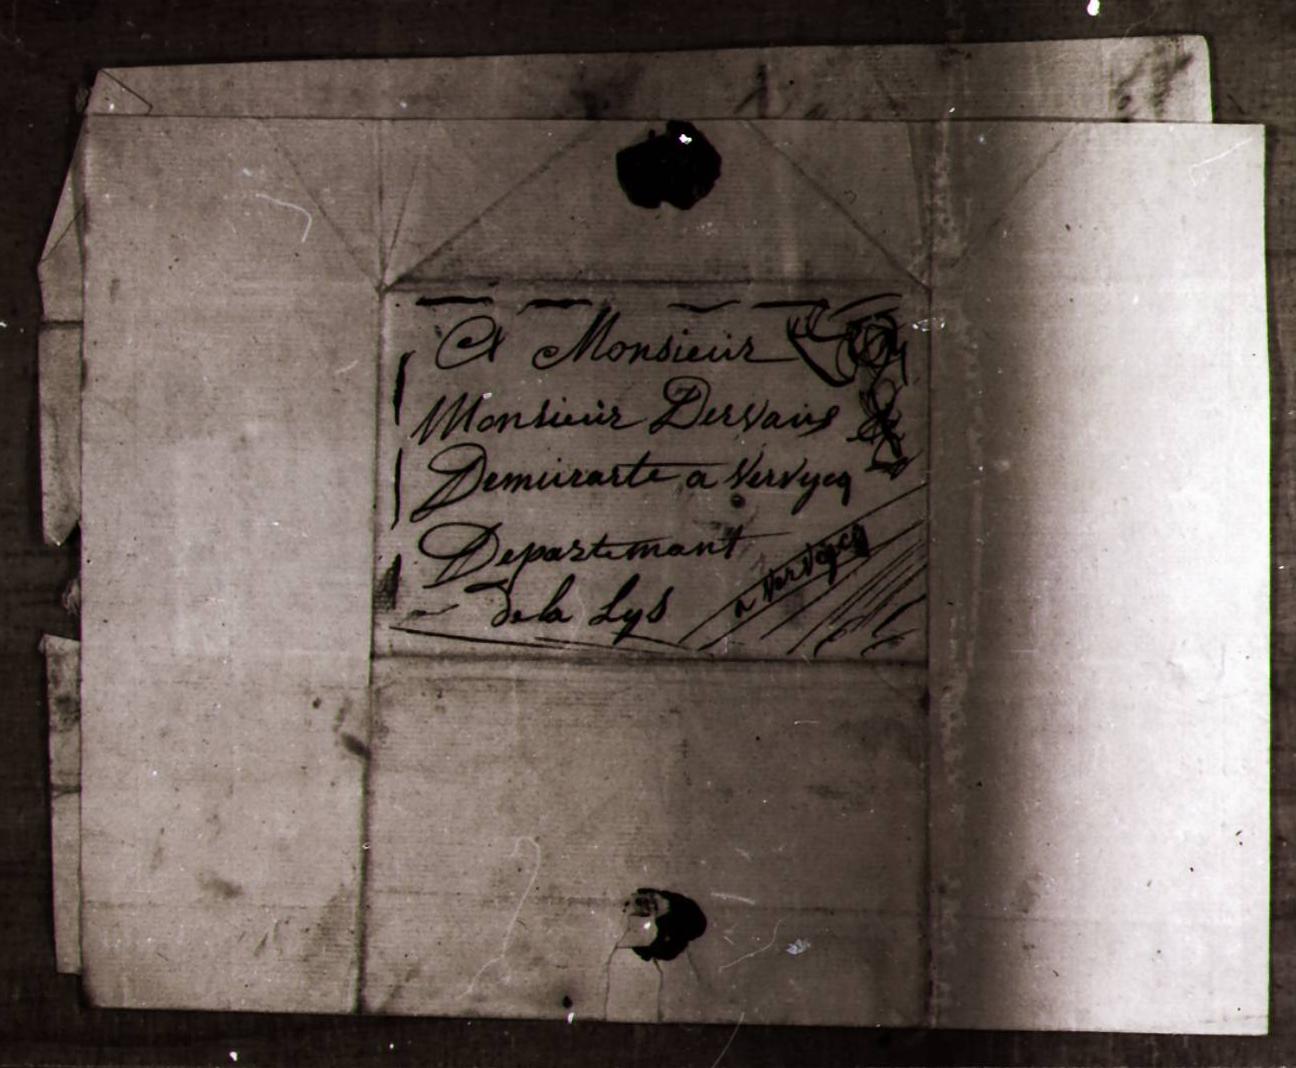 A Monsieur
Monsieur Dervaus
Demeurarte a Vervycq
Departemant
de la Lys
a Vervycq